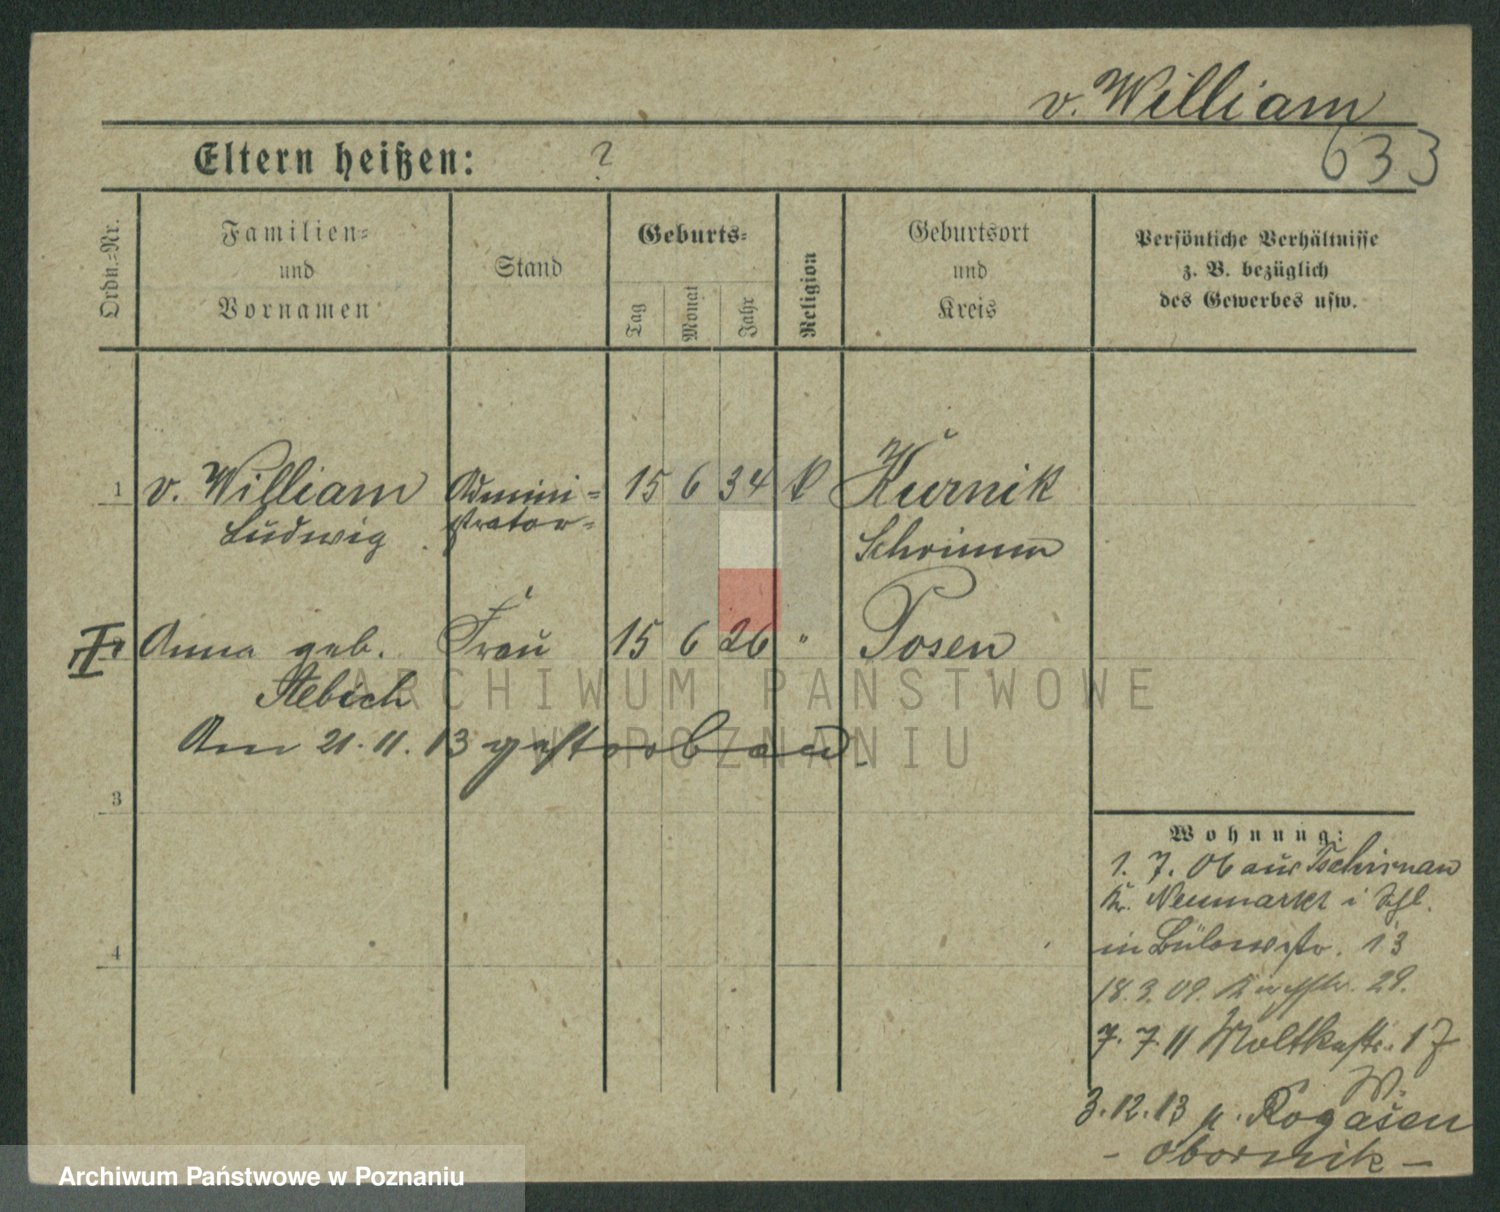 v. William
Eltern heißen: ?
633
Ordn.=Nr.
Familien=
und
Vornamen
Stand
Geburts=
Tag
Monat
Jahr
Religion
Geburtsort
und
Kreis
Persönliche Verhältnisse
z. B. bezüglich
des Gewerbes usw.
1 v. William Admini= 15 6 34 k Kurnik
Ludwig strator= Schrimm
II Anna geb. Frau 15 6 26 " Posen
Am 21.11.13 gestorben.
3
4
Wohnung:
1. 7. 06 aus Tschirnau
Kr. Neumarkt i Schl.
in Bülowstr. 13
18.3.09. 29.
7. 7 11 Moltkestr. 17
W.
3.12.13 n. Rogasen
- Obornik -
ARCHIWUM PAŃSTWOWE
W POZNANIU
Archiwum Państwowe w Poznaniu